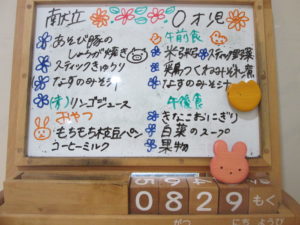 献立
あそび豚の
しょうが焼き
スティックきゅうり
なすのみそ汁
(有)リンゴジュース
おやつ
もちもち枝豆パン
コーヒーミルク
0才児
午前食
スティック野菜
鶏つくねのみそ煮
なすのみそ汁
午後食
きなこおにぎり
白菜のスープ
果物
0829もく
がつ にち ようび